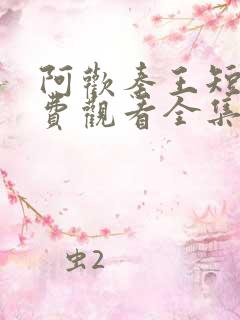 阿歡秦王短
費觀看全集
虫2